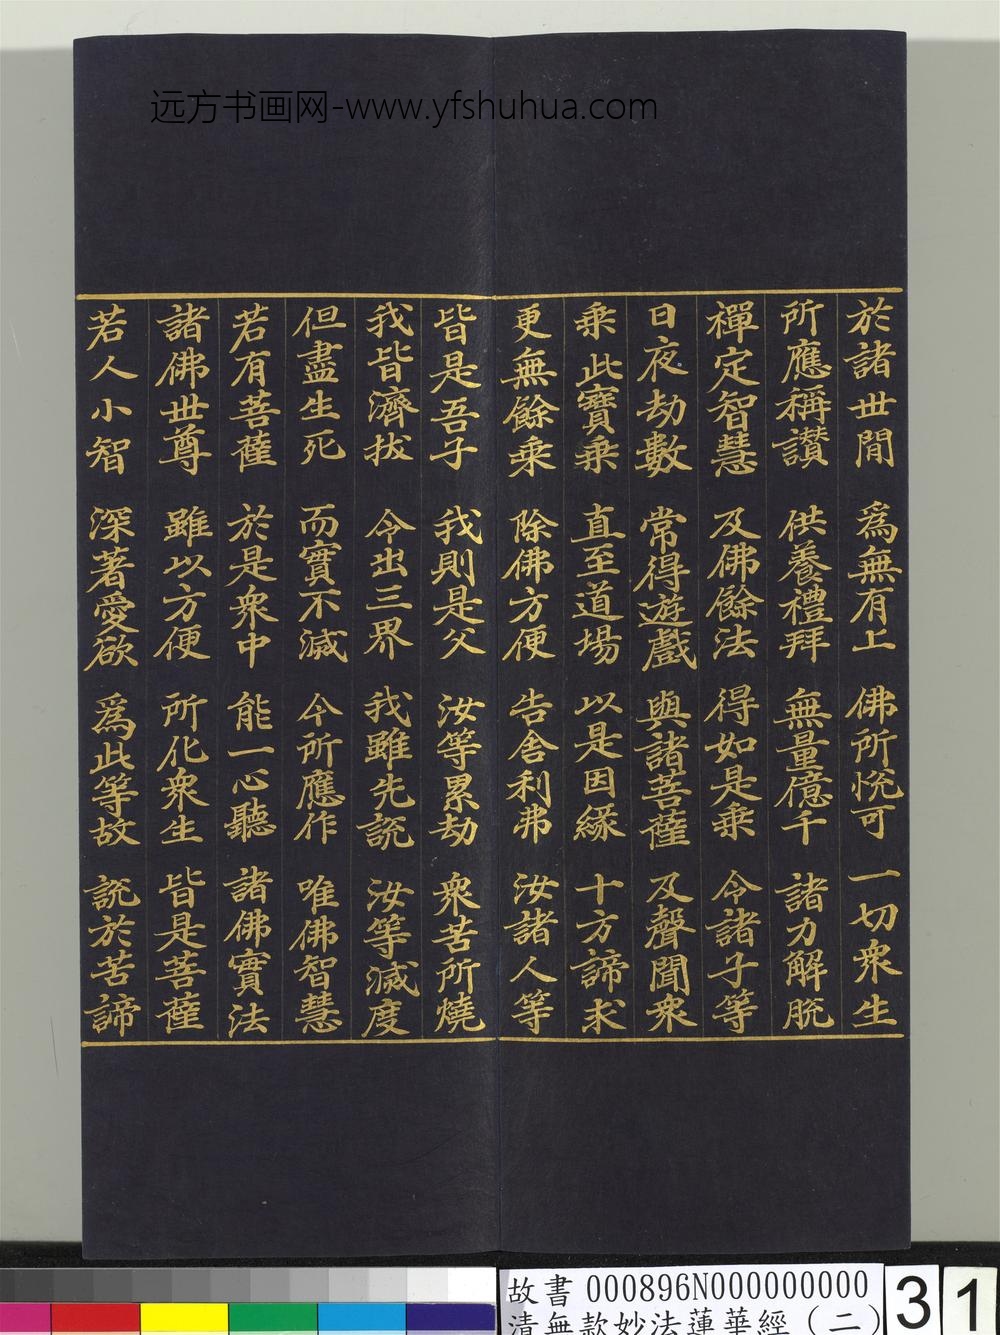 远方书画网-www.yfshuhua.com
於諸世間 為無有上 佛所悅可 一切衆生
所應稱讚 供養禮拜 無量億千 諸力解脫
禪定智慧 及佛餘法 得如是乘 令諸子等
日夜劫數 常得遊戲 與諸菩薩 及聲聞衆
乘此寶乘 直至道場 以是因緣 十方諦求
更無餘乘 除佛方便 告舍利弗 汝諸人等
皆是吾子 我則是父 汝等累劫 衆苦所燒
我皆濟拔 令出三界 我雖先說 汝等滅度
但盡生死 而實不滅 今所應作 唯佛智慧
若有菩薩 於是衆中 能一心聽 諸佛實法
諸佛世尊 雖以方便 所化衆生 皆是菩薩
若人小智 深著愛欲 為此等故 說於苦諦
故書 000896N000000000
清無款妙法蓮華經（二）
31